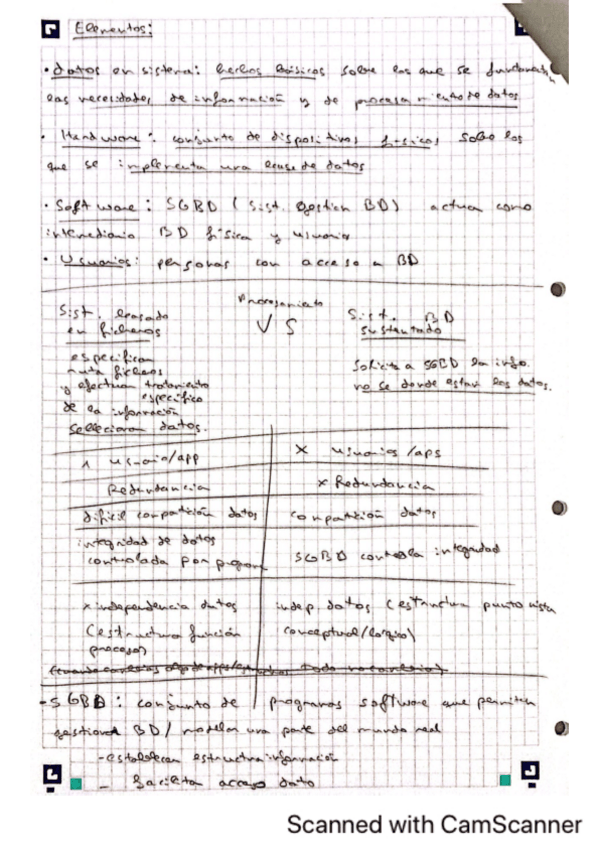 Elementos:
· datos en sistema: hechos básicos sobre los que se fundamentan
las necesidades de información y de procesamiento de datos
· Hardware: conjunto de dispositivos físicos sobre los
que se implementa una base de datos
· Software: SGBD (Sist. gestión BD) actua como
intermediario BD física y usuarios
· Usuarios: personas con acceso a BD
Procesamiento
Sist. basado
en ficheros
VS
Sist. BD
sustentado
especifican
ruta ficheros
y efectuan tratamiento
especifico
de la información
selleccionan datos.
Solicita a SGBD la info.
no se donde estan los datos.
1 usuario/app
X usuarios/aps
Redundancia
x Redundancia
dificil compartición datos
compartición datos
integridad de datos
controlada por programa
SGBD controla integridad
x independencia datos
(estructura función
procesos)
indep. datos (estructura punto vista
conceptual/logico)
- SGBD: conjunto de programas software que permiten
gestionar BD/ modelan una parte del mundo real
- establecen estructura información
- facilita acceso dato
Scanned with CamScanner